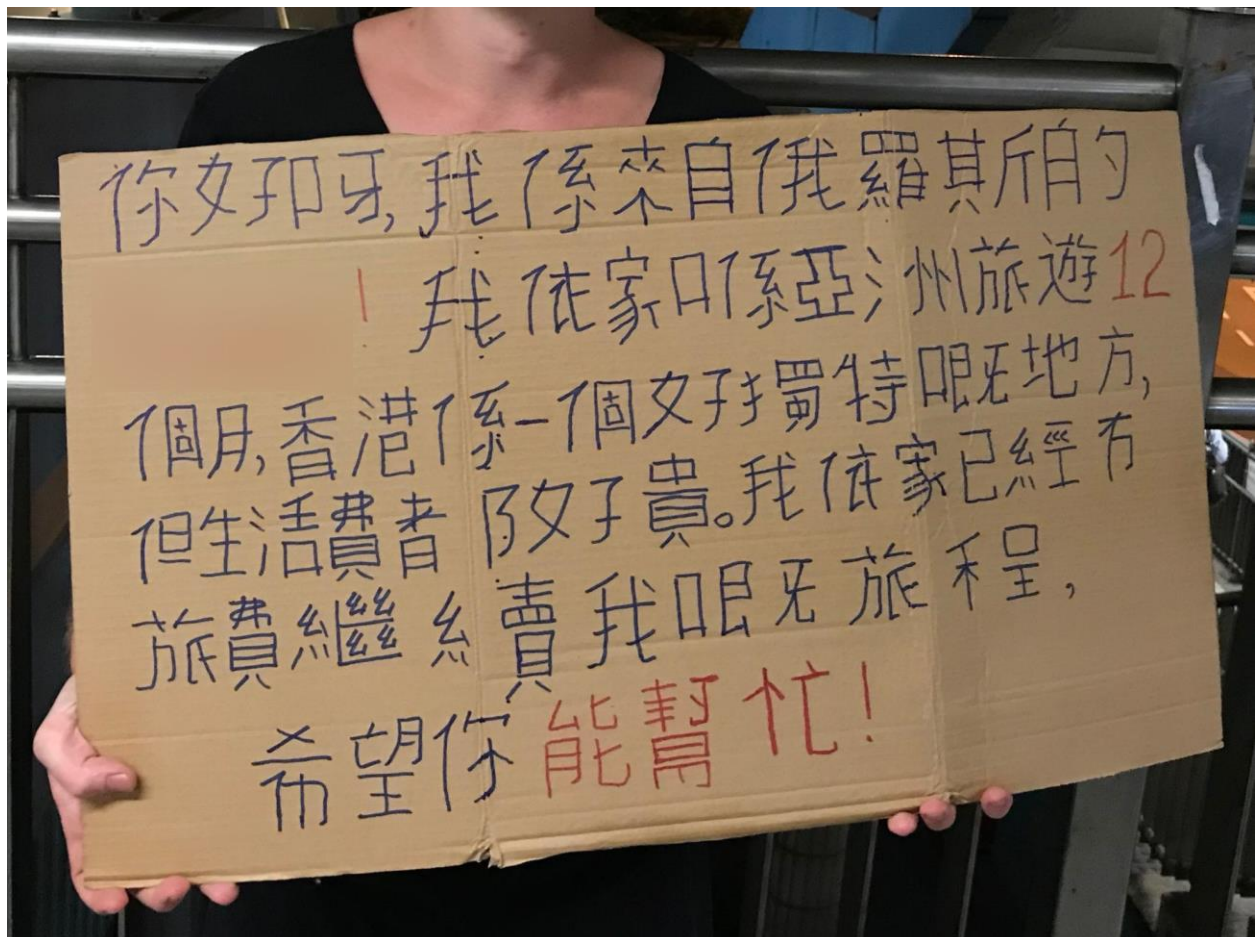 你好吖牙,我係來自俄羅其斤白勺
! 我依家口係亞洲旅遊12
個月,香港係一個好獨特嘅地方,
但生活費都好貴。我依家已經冇
旅費繼續我嘅旅程,
希望你能幫忙!